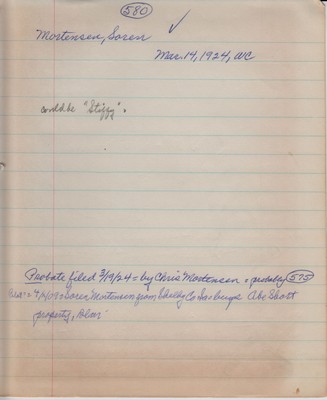 580
Mortensen, Soren ✓
Mar. 14, 1924, WC
could be "Stizzy".
Probate filed 3/19/24 = by Chris Mortensen = probably 575
= Soren Mortensen from Shelby Co Ia = buys Abe Short
property, Blair